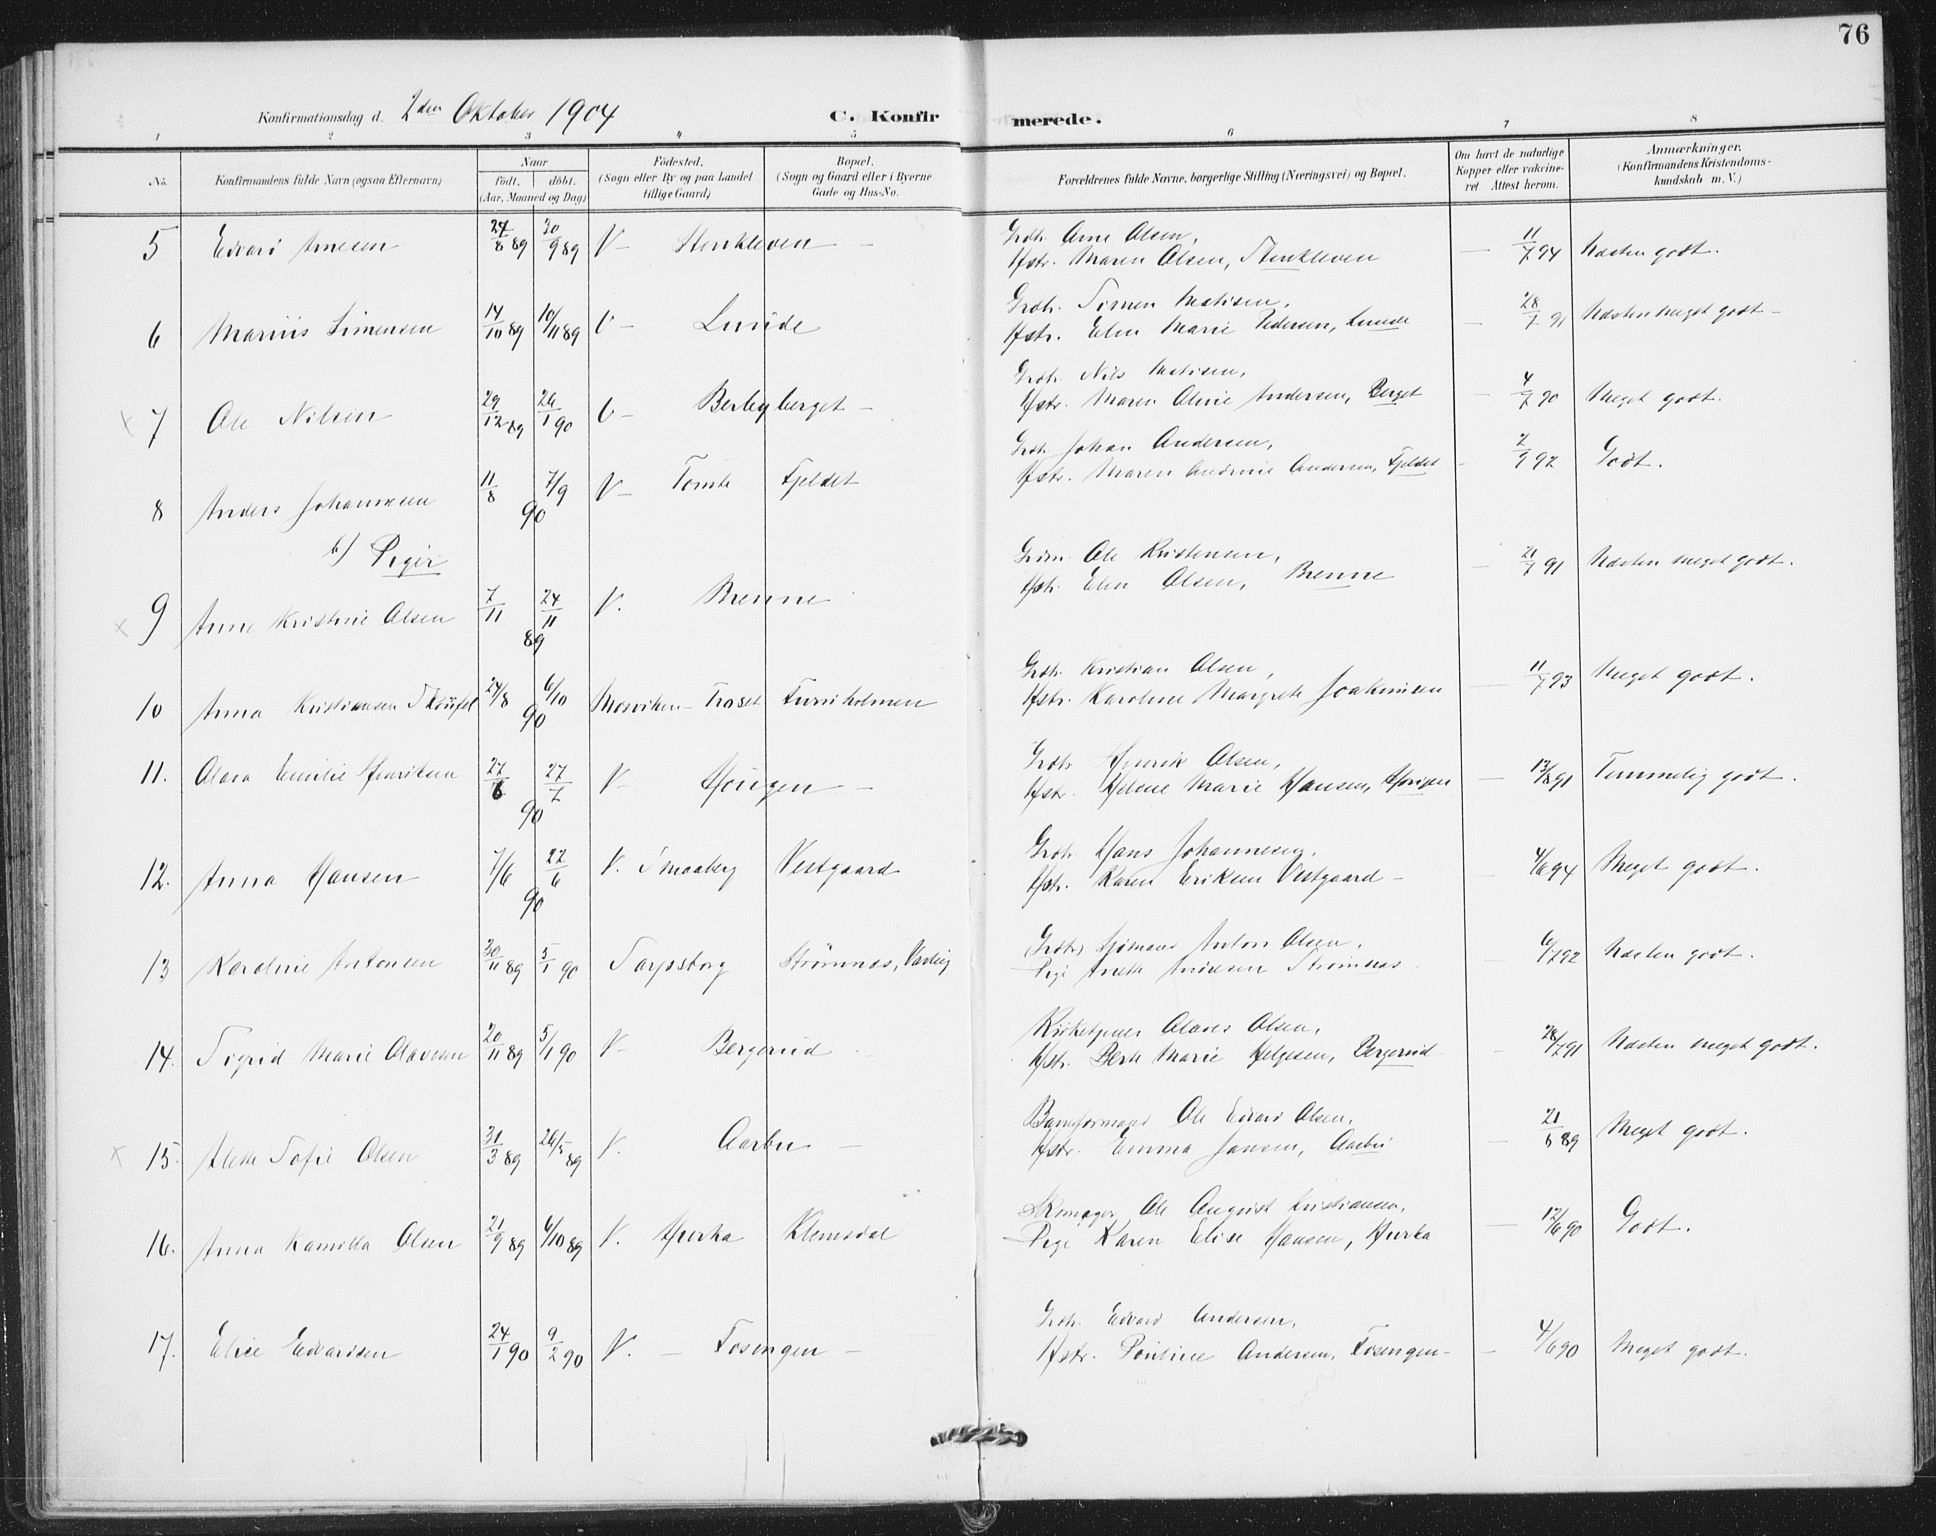 76
Konfirmationsdag d. 2den Oktober 1904
C. Konfirmerede.
1 2 3 4 5 6 7 8
No. Konfirmandens fulde Navn (ogsaa Efternavn) Naar født, døbt. (Aar, Maaned og Dag) Fødested. (Sogn eller By og paa Landet tillige Gaard) Bopæl. (Sogn og Gaard eller i Byerne Gade og Hus-No. Forældrenes fulde Navne, borgerlige Stilling (Næringsvei) og Bopæl. Om havt de naturlige Kopper eller vakcineret. Attest herom. Anmærkninger. (Konfirmandens Kristendomskundskab m. V.)
5 Edvard Arnesen 24/8 89 30/9 89 V – Stenkleven – Grdbr. Arne Olsen,
Hstr. Maren Olsen, Stenkleven – 11/7 94 Næsten godt.
6 Marius Simensen 14/10 89 10/11 89 V – Lunde Grdbr. Simen Matisen,
Hstr. Elen Marie Pedersen, Lunde – 28/7 91 Næsten meget godt –
x 7 Ole Nilsen 29/12 89 26/1 90 V – Berbyberget – Grdbr. Nils Matisen,
Hstr. Maren Oline Andersen, Berget – 4/7 90 Meget godt.
8 Anders Johannesen 11/8 7/9 90 V – Tomte Fjeldet Grdbr. Johan Andersen,
Hstr. Maren Andrine Andersen, Fjeldet – 2/9 92 Godt.
b) Piger
x 9 Anne Kristine Olsen 7/11 24/11 89 V. Brenne Grdm. Ole Kristensen,
Hstr. Elen Olsen, Brenne – 21/7 91 Næsten meget godt.
10 Anna Kristiansen 24/8 6/10 90 Mosviken – Troset Furuholmen Grdbr. Kristian Olsen,
Hstr. Karoline Margrete Joakimsen – 11/7 93 Meget godt.
11. Olava Emilie Henriksen 27/6 27/7 90 V – Hougen – Grdbr. Henrik Olsen,
Hstr. Helene Marie Hansen, Hougen – 13/8 91 Temmelig godt.
12. Anna Hansen 7/6 22/6 90 V. Smaaberg Vestgaard Grdbr. Hans Johannesen,
Hstr. Karen Eriksen Vestgaard – – 4/6 94 Meget godt.
13 Karoline Antonsen 30/11 89 5/1 90 Sarpsborg Strømnæs, Varteig Sjømand Anton Olsen,
Pige Anette Andersen Strømnæs – 6/7 92 Næsten godt.
14. Sigrid Marie Olavesen 20/11 89 5/1 90 V – Bergerud – Kirketjener Olaves Olsen,
Hstr. Berte Marie Helgesen, Bergerud – – 28/7 91 Næsten meget godt.
x 15. Alette Sofie Olsen 31/3 89 26/5 89 V. Aarbu – Baneformand Ole Edvard Olsen,
Hstr. Emma Jansen, Aarbu – 21/6 89 Meget godt.
16. Anna Kamilla Olsen 21/9 89 6/10 89 V. Hurka Klemsdal Skomager Ole August Kristiansen,
Pige Karen Elise Hansen, Hurka – 12/6 90 Godt.
17. Elise Edvardsen 24/1 90 9/2 90 V. – Fosengen – Grdbr. Edvard Andersen,
Hstr. Pauline Andersen, Fosengen – – 4/6 90 Meget godt.